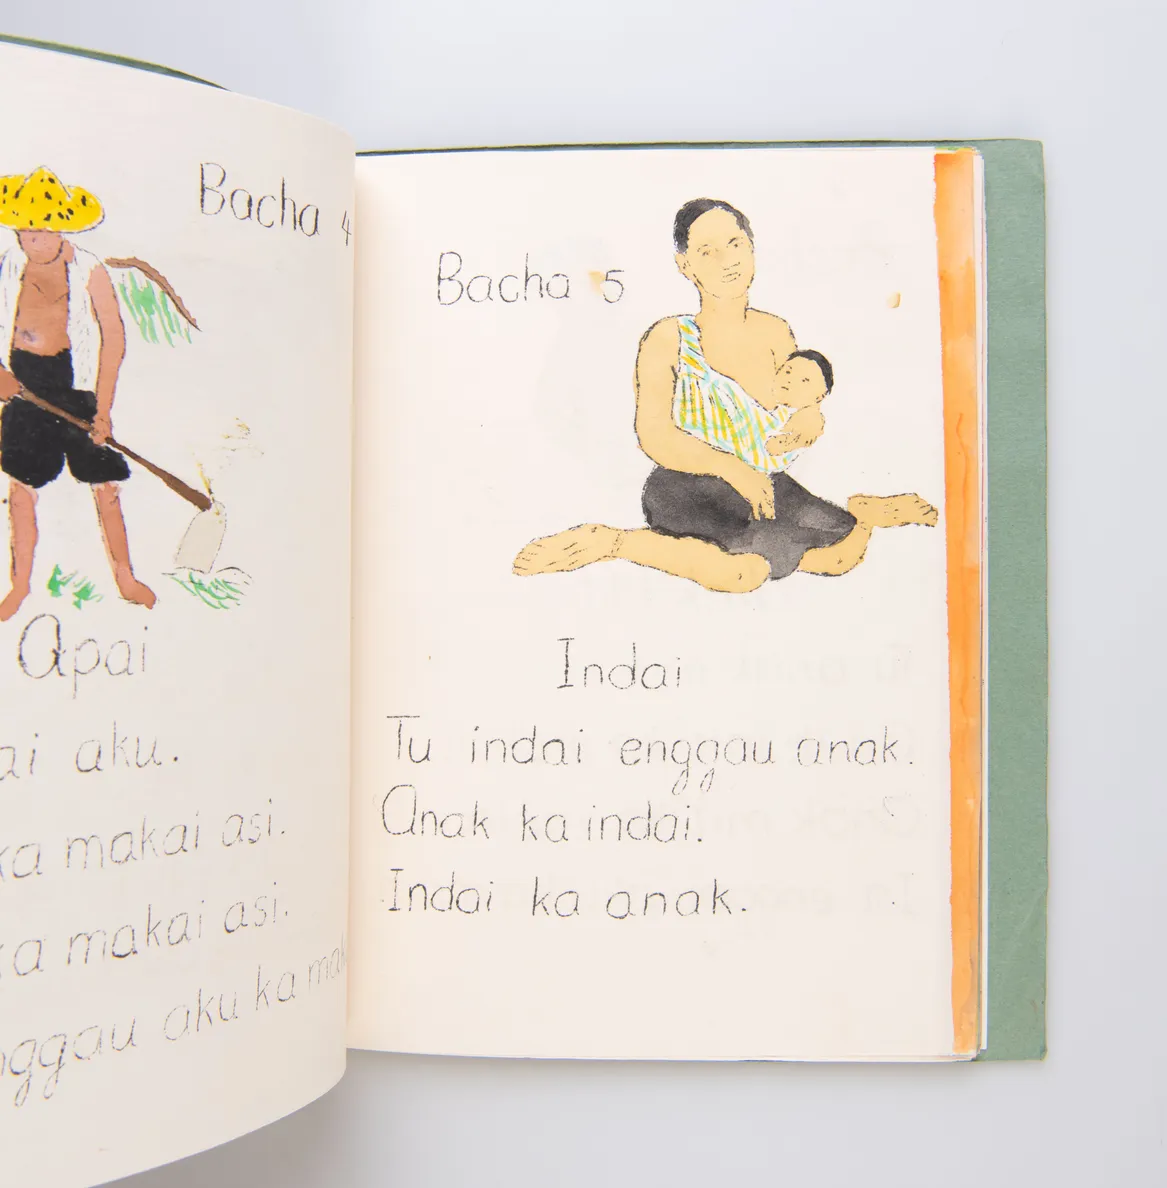 Bacha 4
Apai
aku.
makai asi.
makai asi.
aku ka
Bacha 5
Indai
Tu indai enggau anak.
Anak ka indai.
Indai ka anak.